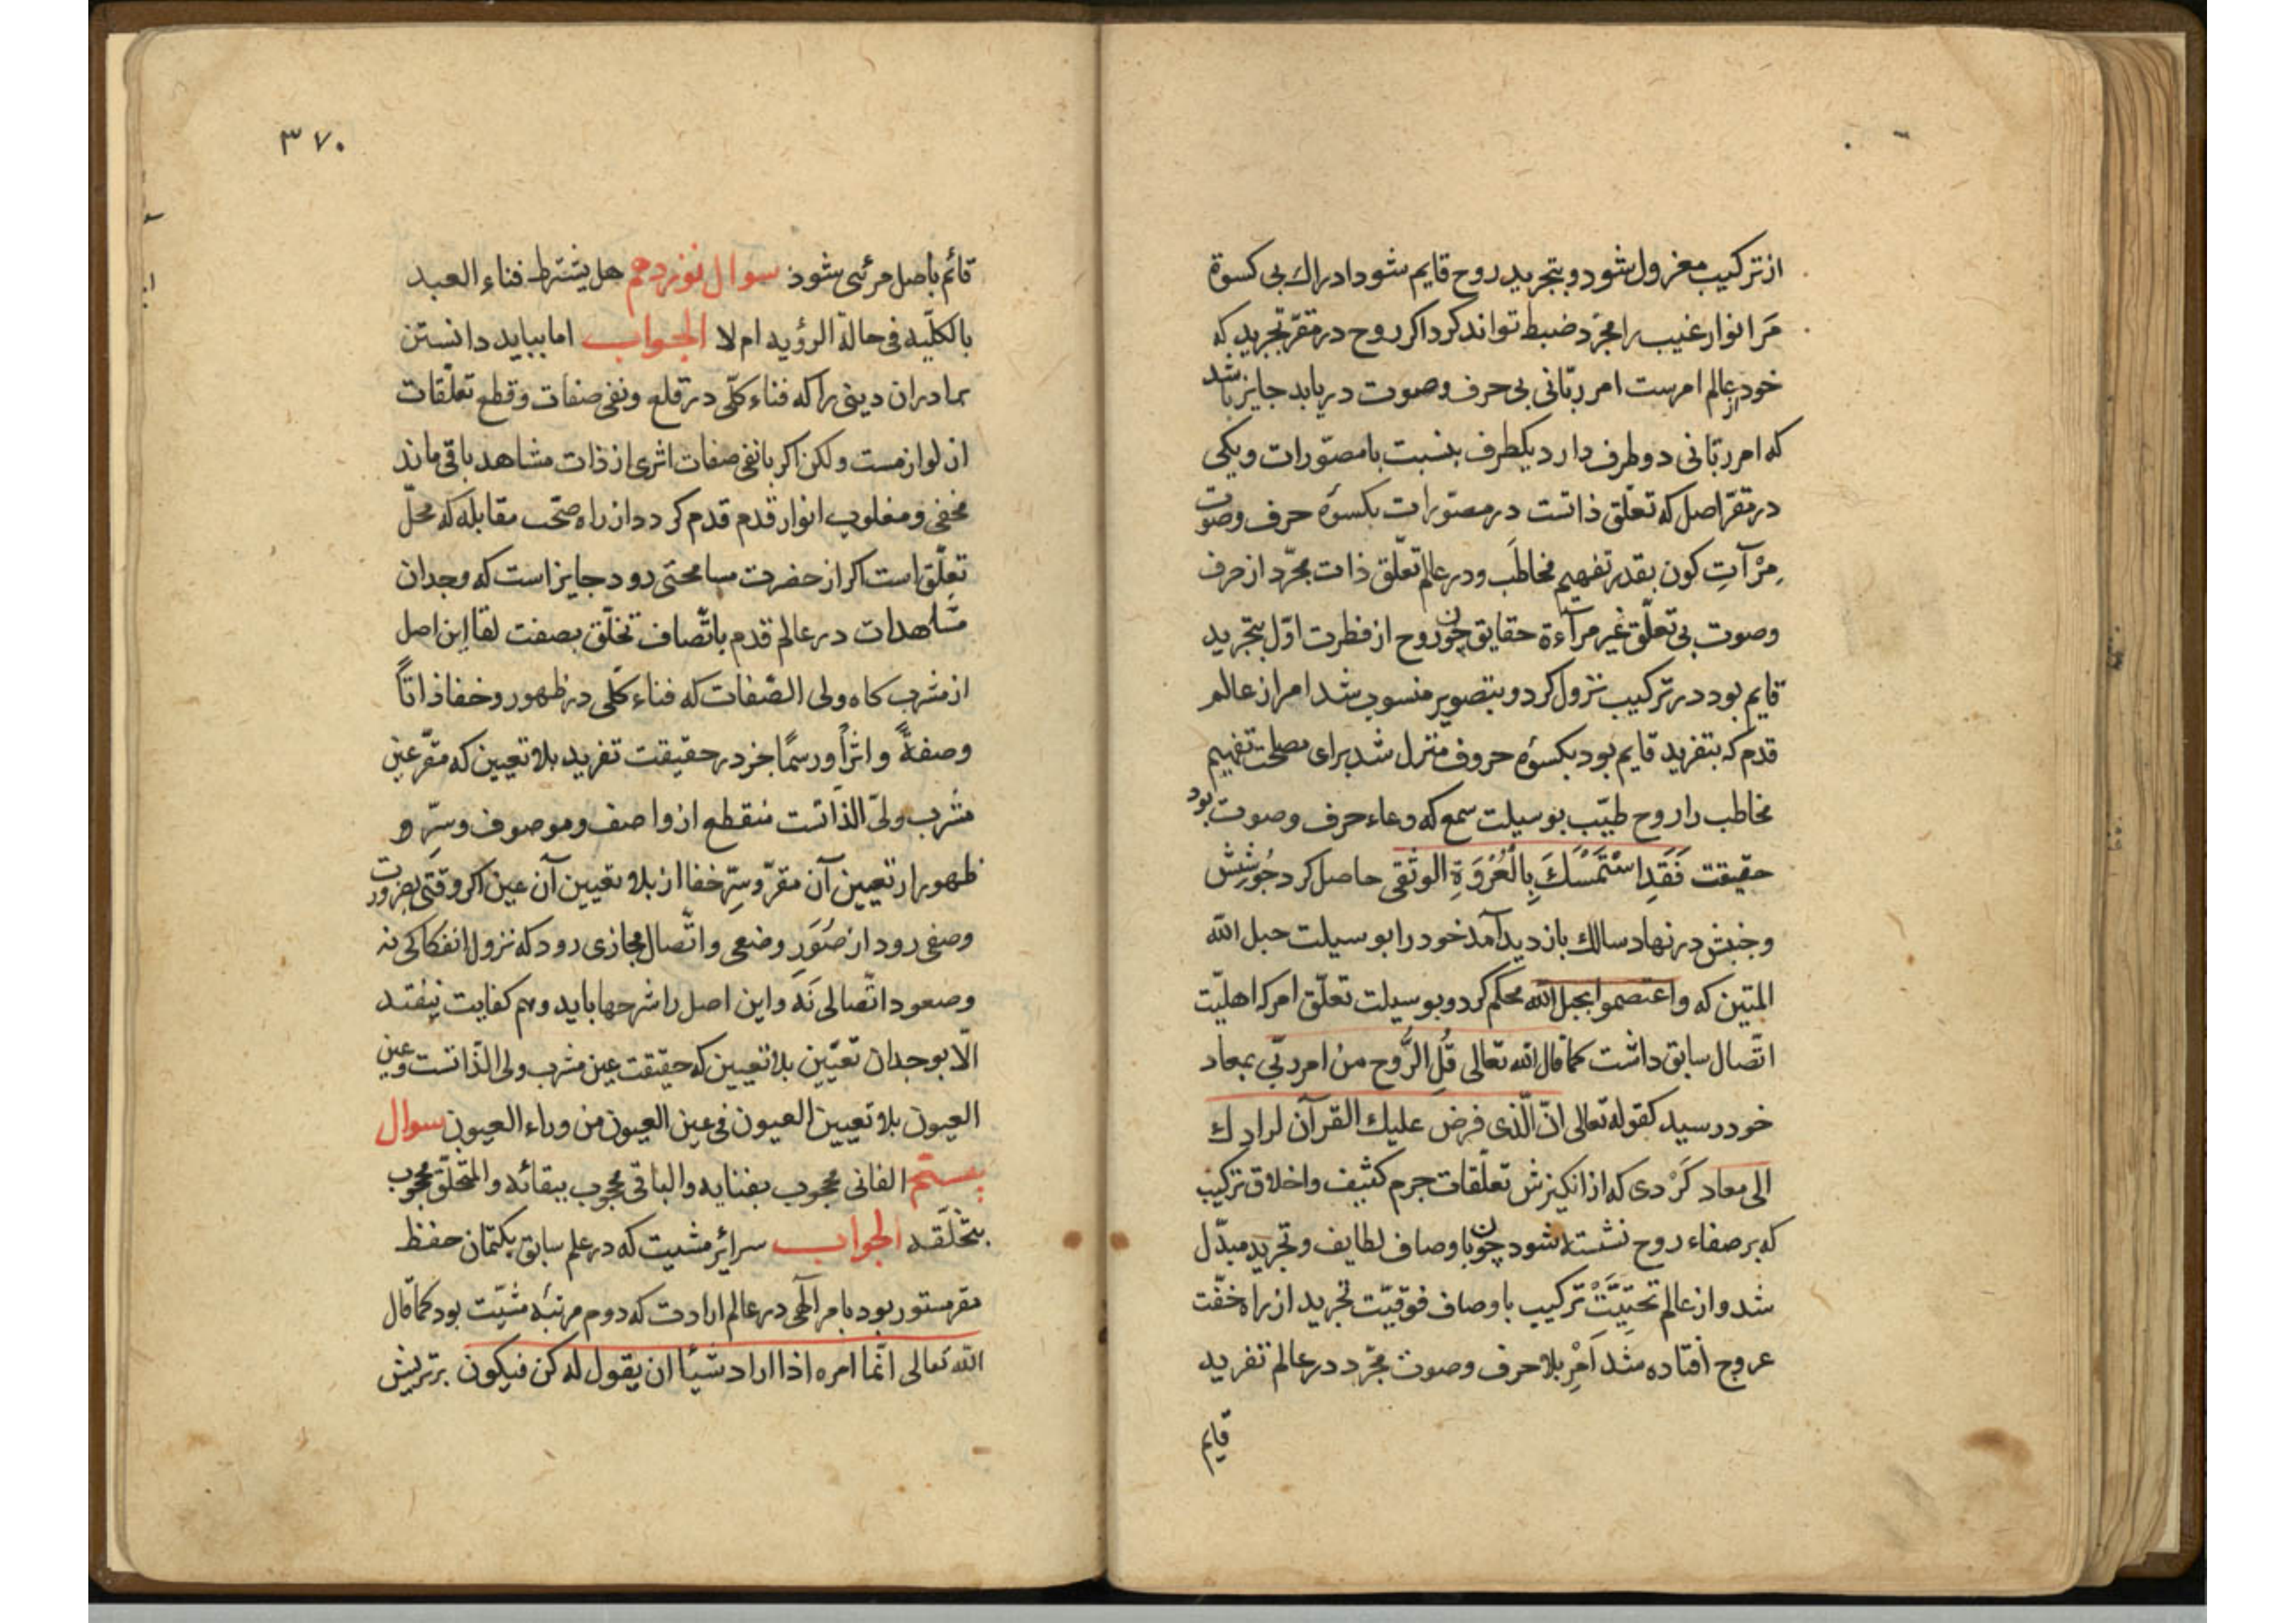 از ترکیب معزول شود و بتجرید روح قایم شود ادراك بی کسوة
مَر انوار غیب را مجرّد ضبط تواند کرد اکر روح در مقرّ تجرید که
خود از عالم امرست امر ربّانی بی حرف وصوت دریابد جایز باشد
که امر ربّانی دو طرف دارد یکطرف بنسبت با مصوّرات ویکی
در مقرّ اصل که تعلّق ذاتست در مصوّرات بکسوة حرف وصوت
مِرْآتِ کون بقدر تفهیم مخاطَب ودر عالم تعلّق ذات مجرّد از حرف
وصوت بی تعلّق غیر مرآءة حقایق چون روح از فطرت اوّل بتجرید
قایم بود در ترکیب نزول کرد وبتصویر منسوب شد امر از عالم
قدم که بتفرید قایم بود بکسوة حروف منزل شد برای مصلحت تفهیم
مخاطب را روح طیّب بوسیلت سمع که وعاء حرف وصوت بود
حقیقت فَقَدِ اسْتَمْسَكَ بِالْعُرْوَةِ الوثقی حاصل کرد جُورشِش
وجنبش در نهاد سالك بازدید آمد خود را بوسیلت حبل الله
المتین که واعتصموا بحبل الله محکم کرد وبوسیلت تعلّق امر که اهلیّت
اتّصال سابق داشت کما قال الله تعالی قُلِ الرُّوح من امر ربّی بمعاد
خود رسید کقوله تعالی انّ الّذی فرض علیك القرآن لرادك
الی معاد کَرْدی که از انکیزش تعلّقات جرم کثیف واخلاق ترکیب
که بر صفاء روح نشسته شود چون باوصاف لطایف وتجرید مبدّل
شد واز عالم تحتیَّتْ ترکیب باوصاف فوقیّت تجرید از راه خفّت
عروج افتاده شد اَمْرِ بلا حرف وصوت مجرّد در عالم تفرید
قایم
۳۷۰
قائم باصل مرئی شود سوال نوزدهم هل یشترط فناء العبد
بالکلّیه فی حالة الرؤیه ام لا الجواب اما بباید دانستن
برادران دینی را که فناء کلّی در قلع ونفی صفات وقطع تعلّقات
از لوازمست ولکن اکر با نفی صفات اثری از ذات مشاهد باقی ماند
مخفی ومغلوب انوار قدم قدم کردد از راه صحّت مقابله که محلّ
تعلّق است اکر از حضرت مسامحتی رود جایز است که وجدان
مشاهدات در عالم قدم باتّصاف تخلّق بصفت لقا این اصل
از مشرب کاه ولی الصّفات که فناء کلّی در ظهور وخفا ذاتاً
وصفةً واثراً ورسمًا جز در حقیقت تفرید بلا تعیین که مقرّ عین
مشرب ولیّ الذّاتست منقطع از واصف وموصوف وسرّ و
ظهور از تعیین آن مقرّ وسِرّ خفا از بلا تعیین آن عین اکر وقتی بضرورت
وصفی رود از صُوَرِ وضعی واتّصال مجازی رود که نزول انفکاکی نه
وصعود اتّصالی نَه واین اصل را شرحها باید وهم کفایت نیفتد
الّا بوجدان تعیّین بلا تعیین که حقیقت عین مشرب ولی الذّاتست وعین
العیون بلا تعیین العیون فی عین العیون من وراء العیون سوال
بیستم الفانی محجوب بفنایه والباقی محجوب ببقائه والمتخلّق محجوب
بتخلّقه الجواب سرائر مشیت که در علم سابق بکتمان حفظ
مقر مستور بود بامر الٓهی در عالم ارادت که دوم مرتبهٔ مشیّت بود کما قال
الله تعالی انّما امره اذا اراد شیئا ان یقول له کن فیکون برتریش